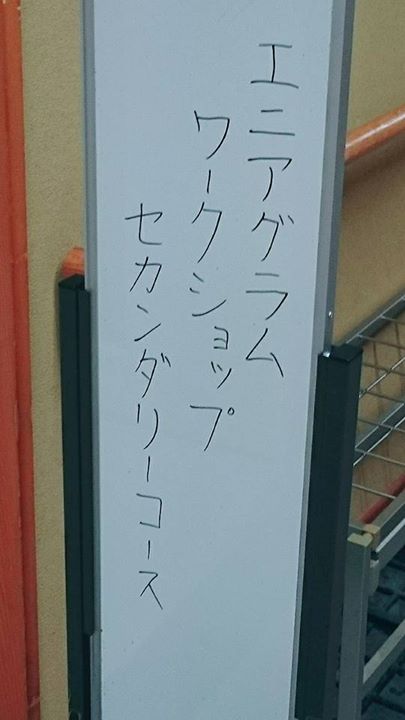 エニアグラム
ワークショップ
セカンダリーコース